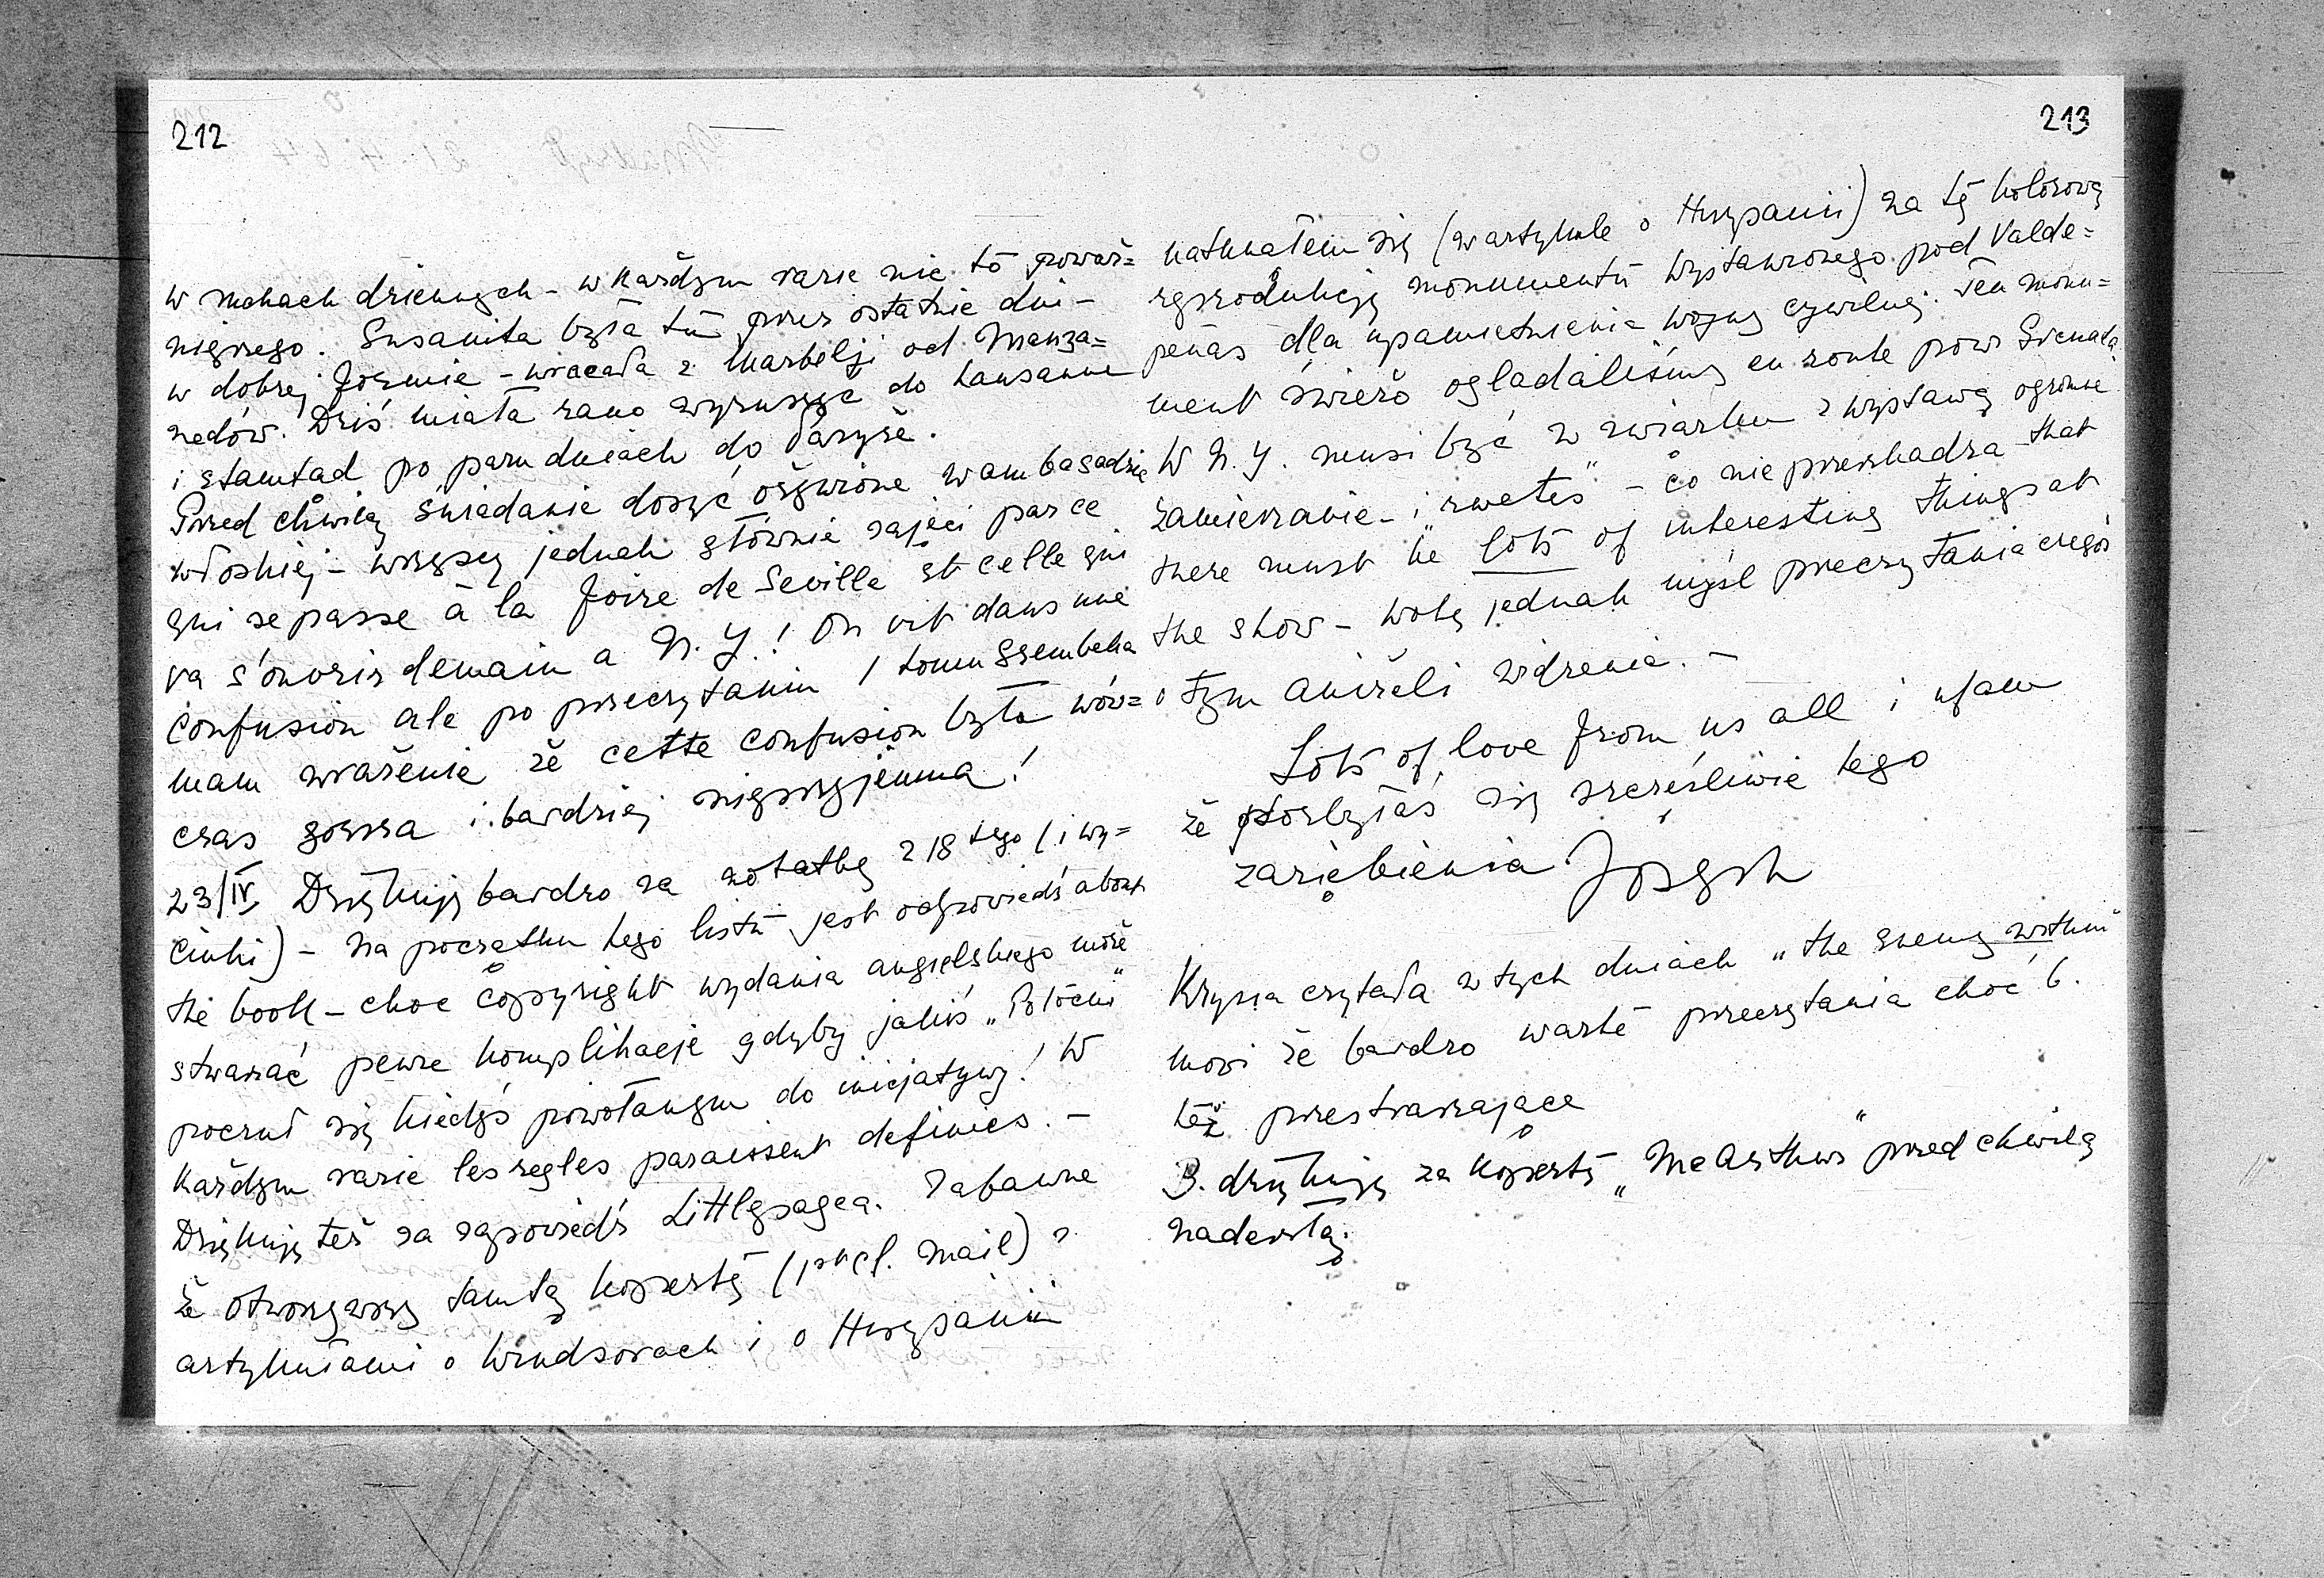 212
w mokach dziennych – w każdym razie nic to poważ=
niejszego. Susanita była tu przez ostatnie dni –
w dobrej formie – wracała z Marbelji od Manza=
nedów. Dziś miała rano wyruszyć do Lausanne
i stamtąd po paru dniach do Paryża.
Przed chwilą śniadanie dosyć ożywione w ambasadzie
włoskiej – wszyscy jednak głównie zajęci par ce
qui se passe à la foire de Seville et celle qui
va s'ouvrir demain a N. Y.! On vit dans une
confusion ale po przeczytaniu I tomu Szembeka
mam wrażenie że cette confusion była wów=
czas gorsza i bardziej nieprzyjemna!
23/IV Dziękuję bardzo za notatkę z 18 tego (i wy=
cinki) – na początku tego listu jest odpowiedź about
the book – choć copyright wydania angielskiego może
stwarzać pewne komplikacje gdyby jakiś „Potocki"
poczuł się kiedyś powołanym do inicjatywy! W
każdym razie les regles paraissent definies. –
Dziękuję też za zapowiedź Littlepagea. Zabawne
że otworzywszy tamtą kopertę (1st cl. mail) z
artykułami o Windsorach i o Hiszpanii
213
natknąłem się (w artykule o Hiszpanii) na tę kolorową
reprodukcję monumentu wystawionego pod Valde=
peñas dla upamiętnienia wojny cywilnej. Ten monu=
ment świeżo oglądaliśmy en route pour Grenada
W N. Y. musi być w związku z wystawą ogromne
zamieszanie – i „rwetes" – co nie przeszkadza that
there must be lots of interesting things at
the show – wolę jednak myśl przeczytania czegoś
o tym aniżeli widzenia. –
Lots of love from us all i ufam
że pozbyłaś się szczęśliwie tego
zaziębienia Józech
Krysia czytała w tych dniach „the enemy within"
mówi że bardzo warte przeczytania choć b.
też przestraszające
B. dziękuję za kopertę „McArthur" przed chwilą
nadeszłą.